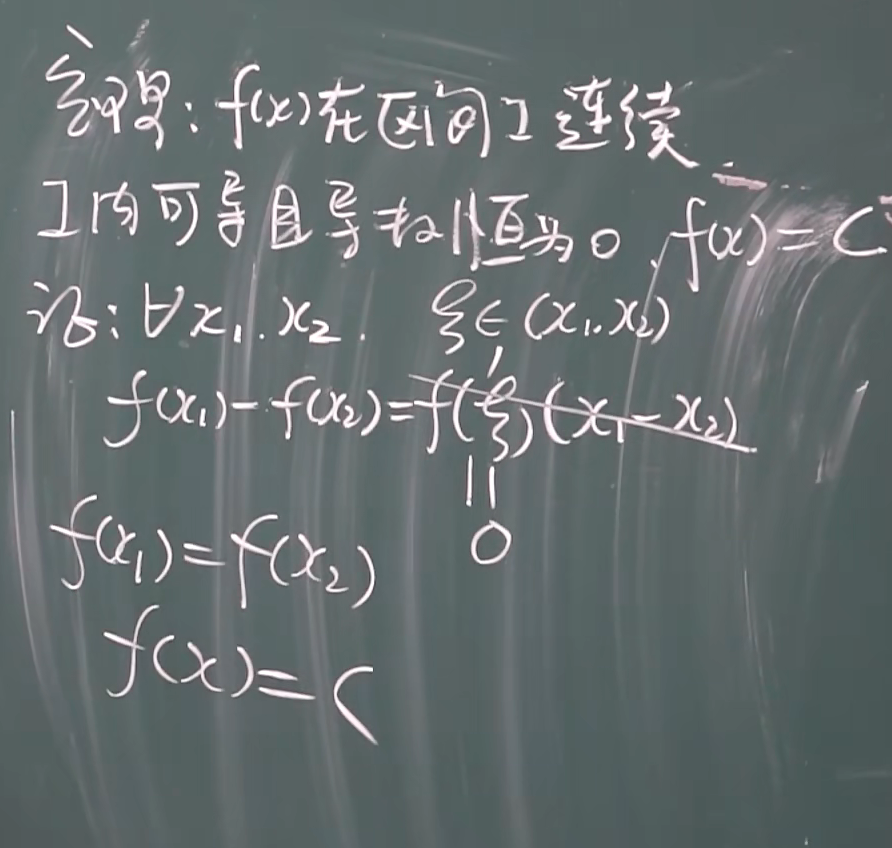 定理:f(x)在区间I连续
I内可导且导数恒为0,f(x)=C
证:∀x₁.x₂. ξ∈(x₁.x₂)
f(x₁)-f(x₂)=f'(ξ)(x₁-x₂)
||
0
f(x₁)=f(x₂)
f(x)=C